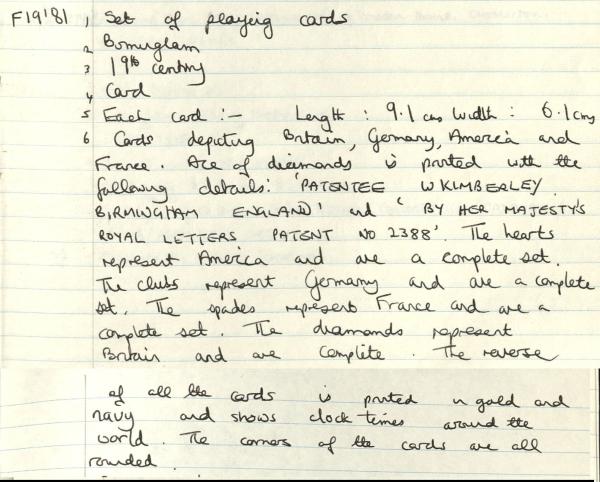 F19'81 1, Set of playing cards
2 Birmingham
3 19th century
4 Card
5 Each card :- Length : 9.1 cms Width : 6.1 cms
6 Cards depicting Britain, Germany, America and
France. Ace of diamonds is printed with the
following details: 'PATENTEE W KIMBERLEY
BIRMINGHAM ENGLAND' and 'BY HER MAJESTY'S
ROYAL LETTERS PATENT NO 2388'. The hearts
represent America and are a complete set.
The clubs represent Germany and are a complete
set. The spades represent France and are a
complete set. The diamonds represent
Britain and are complete. The reverse
of all the cards is printed in gold and
navy and shows clock times around the
world. The corners of the cards are all
rounded.